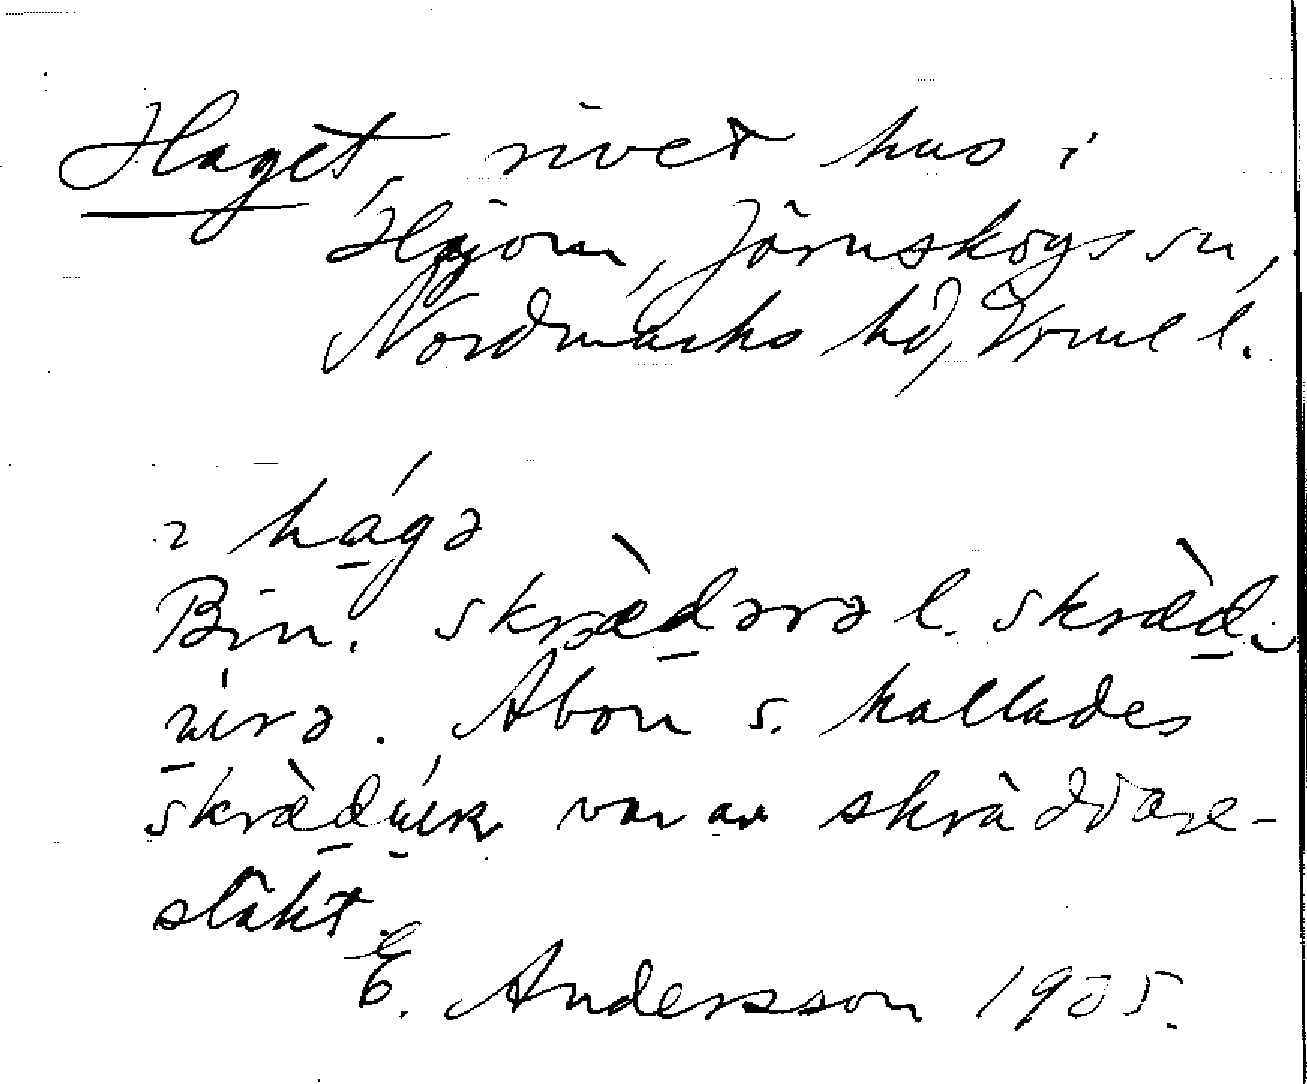 Haget, rivet hus i
Högom, Järnskogs sn,
Nordmarks hd, Vrml l.
ɩ hágə
Bin. skræ̀dərə l. skræ̀d-
nírə. Åbon s. kallades
skræ̀d var av skräddare-
släkt.
E. Andersson 1935.